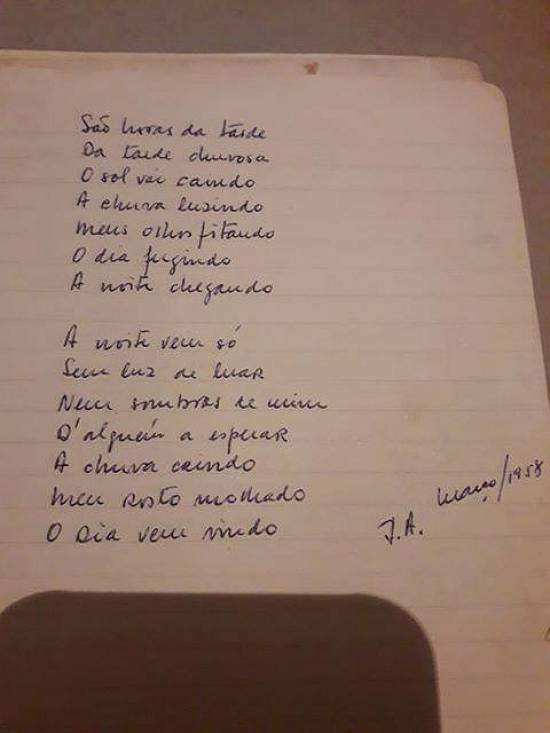 São horas da tarde
Da tarde chuvosa
O sol vai caindo
A chuva luzindo
Meus olhos fitando
O dia fugindo
A noite chegando
A noite vem só
Sem luz de luar
Nem sombras de mim
D'alguém a esperar
A chuva caindo
Meu rosto molhado
O dia vem vindo
J.A. março/1958